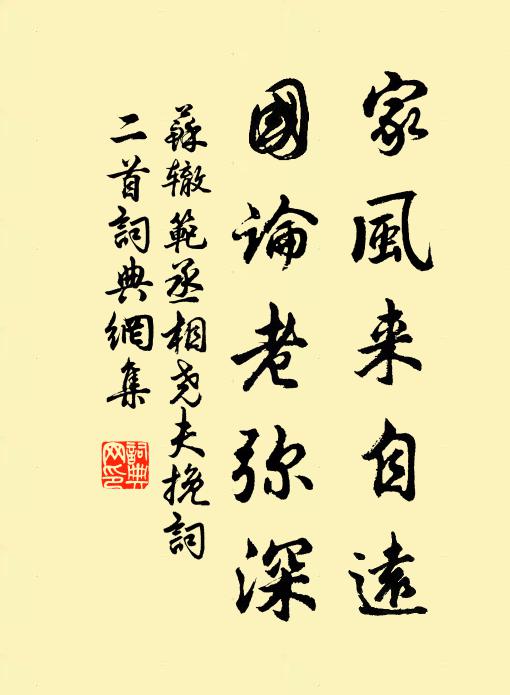 家風来自遠
國論老弥深
蘇辙範丞相尧夫挽詞
二首詞典網集
詞典
网印